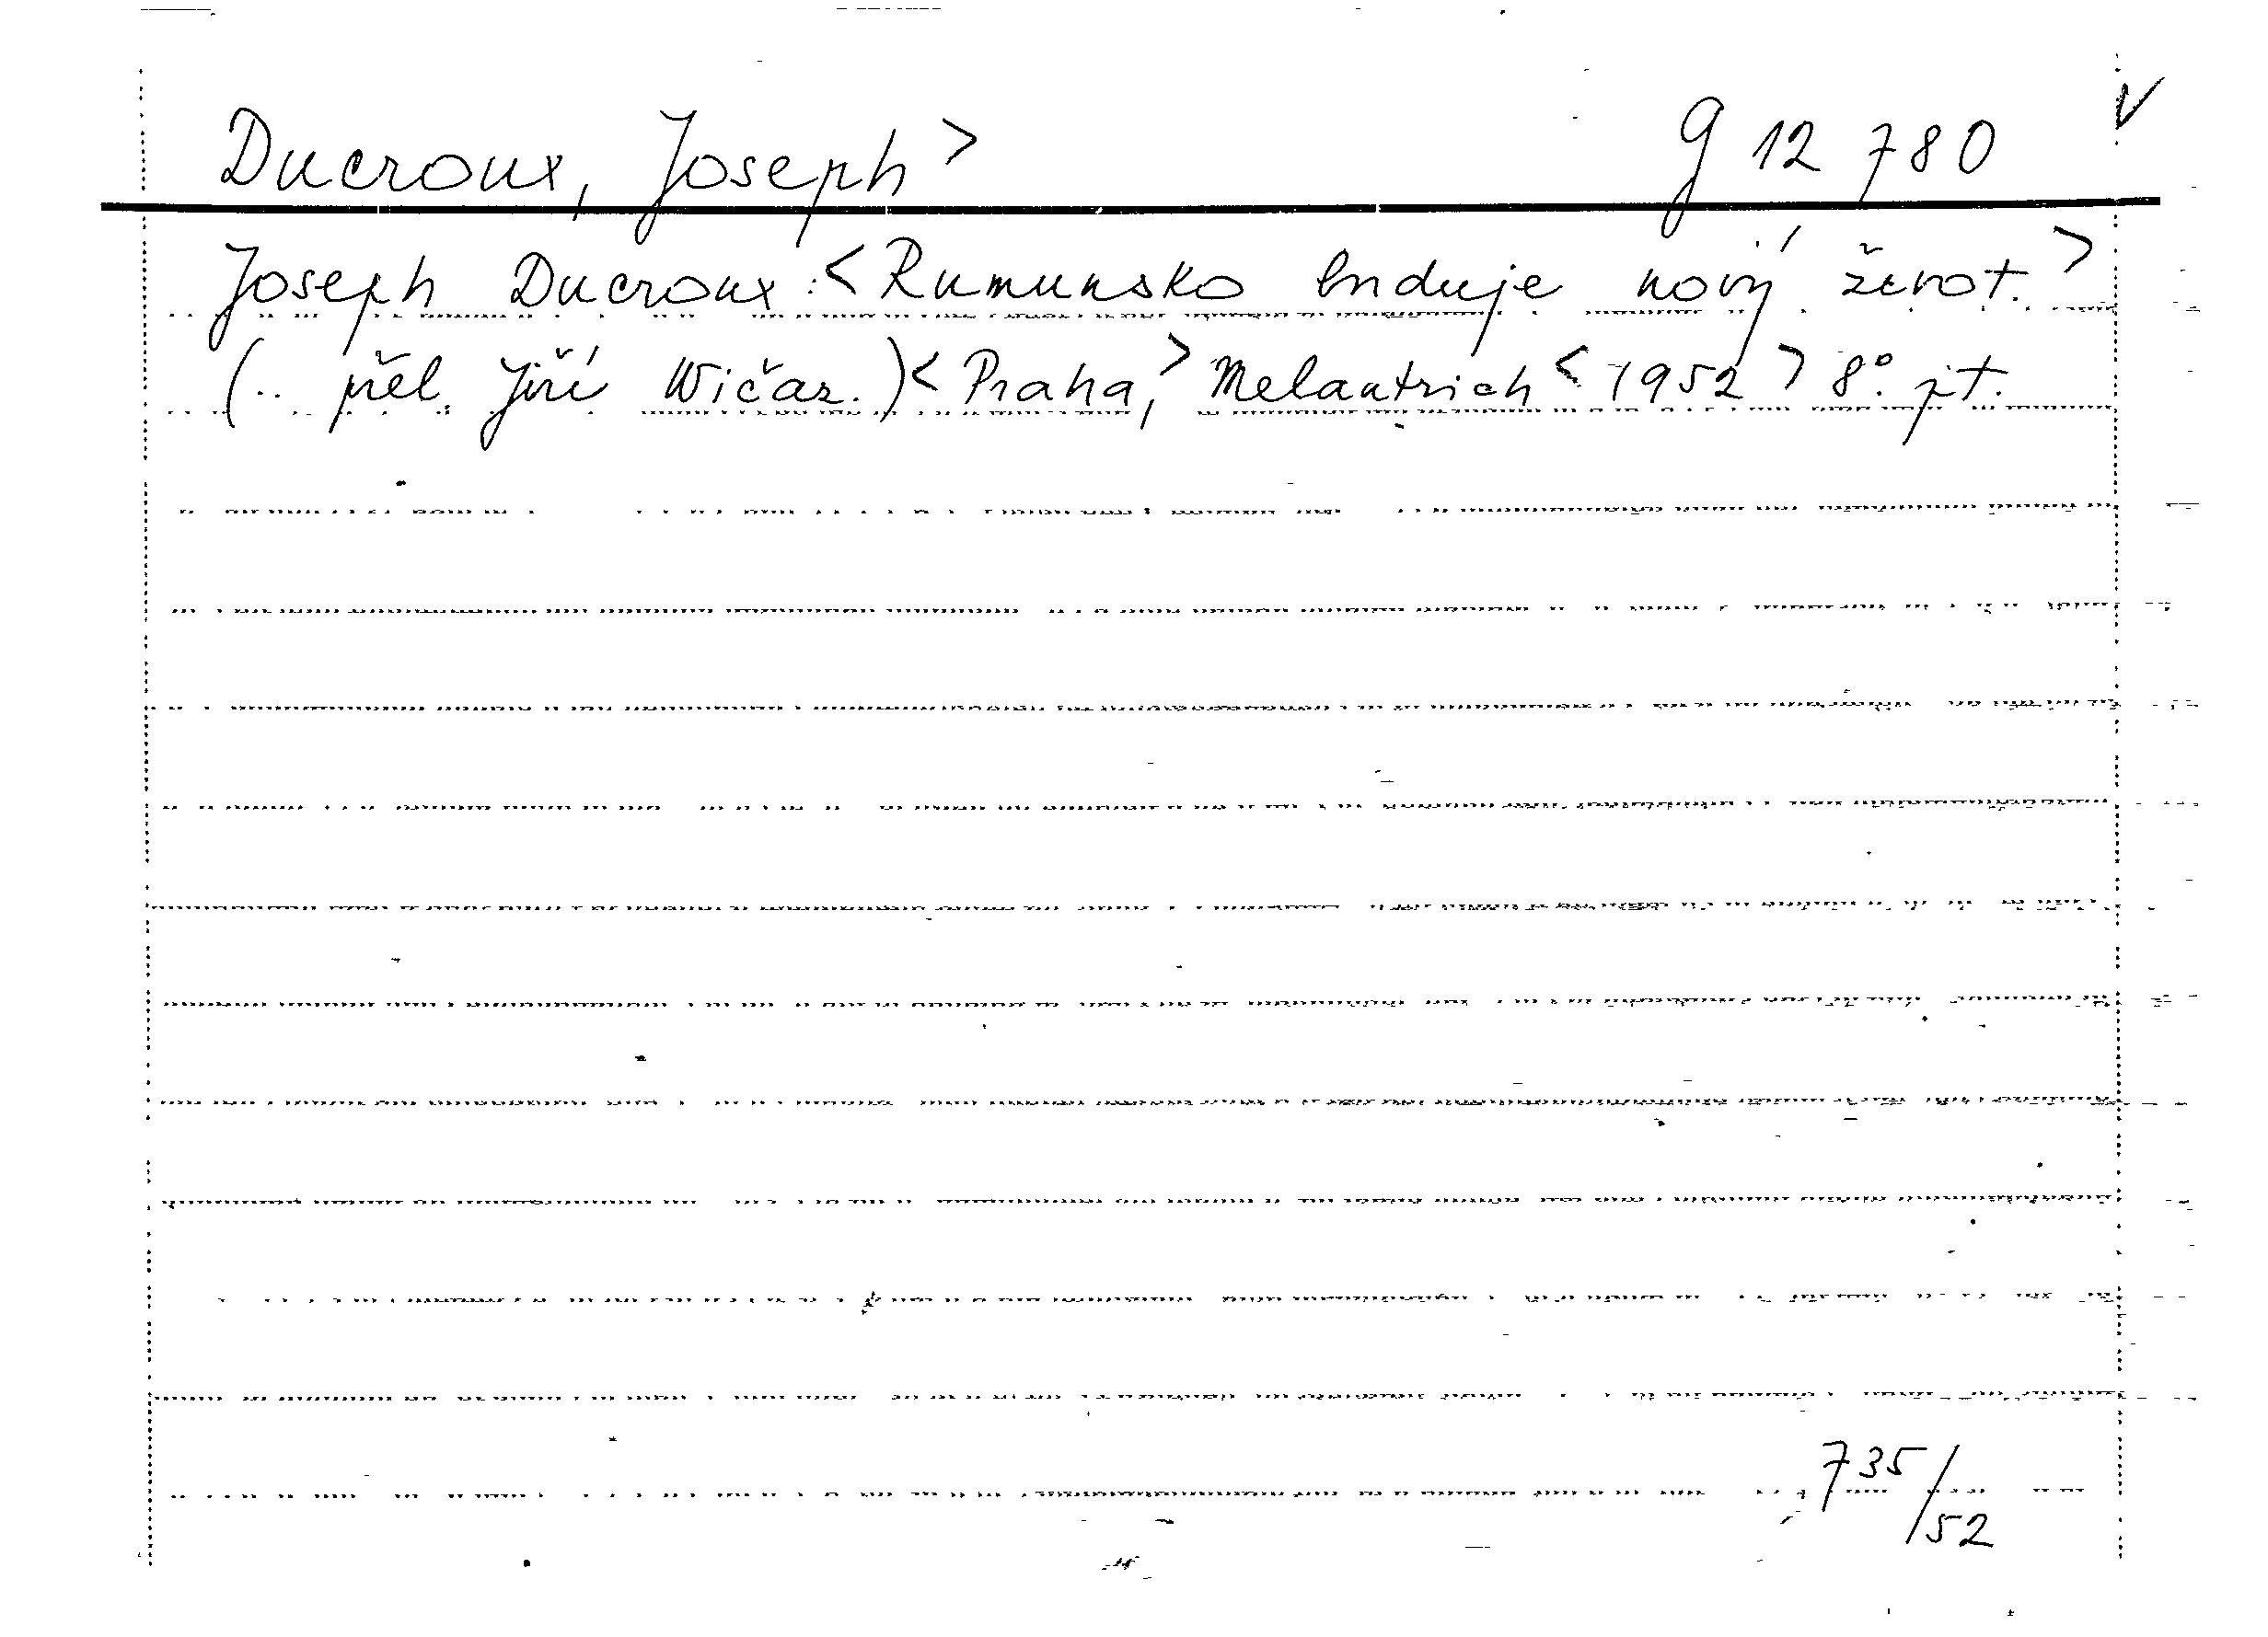 Ducroux, Joseph> g 12 780 V
Joseph Ducroux: <Rumunsko buduje nový život.>
(.. přel. Jiří Wičaz.) <Praha,> Melantrich <1952> 8°. pt.
735/52